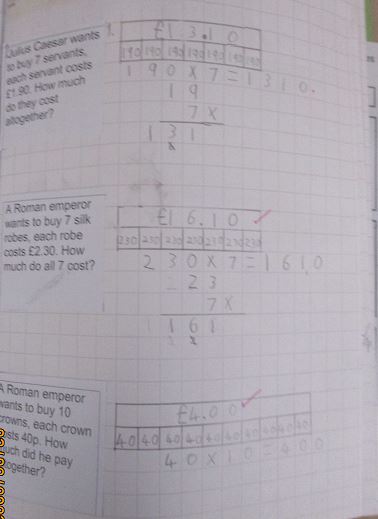 Julius Caesar wants
to buy 7 servants,
each servant costs
£1.90. How much
do they cost
altogether?
1.
£13.10
190 190 190 190 190 190 190
190 x 7 = 1310.
19
7 x
131
A Roman emperor
wants to buy 7 silk
robes, each robe
costs £2.30. How
much do all 7 cost?
£16.10 ✓
230 230 230 230 230 230 230
230 x 7 = 1610
23
7 x
161
2
A Roman emperor
wants to buy 10
crowns, each crown
costs 40p. How
much did he pay
together?
£4.00 ✓
40 40 40 40 40 40 40 40 40 40
40 x 10 = 400